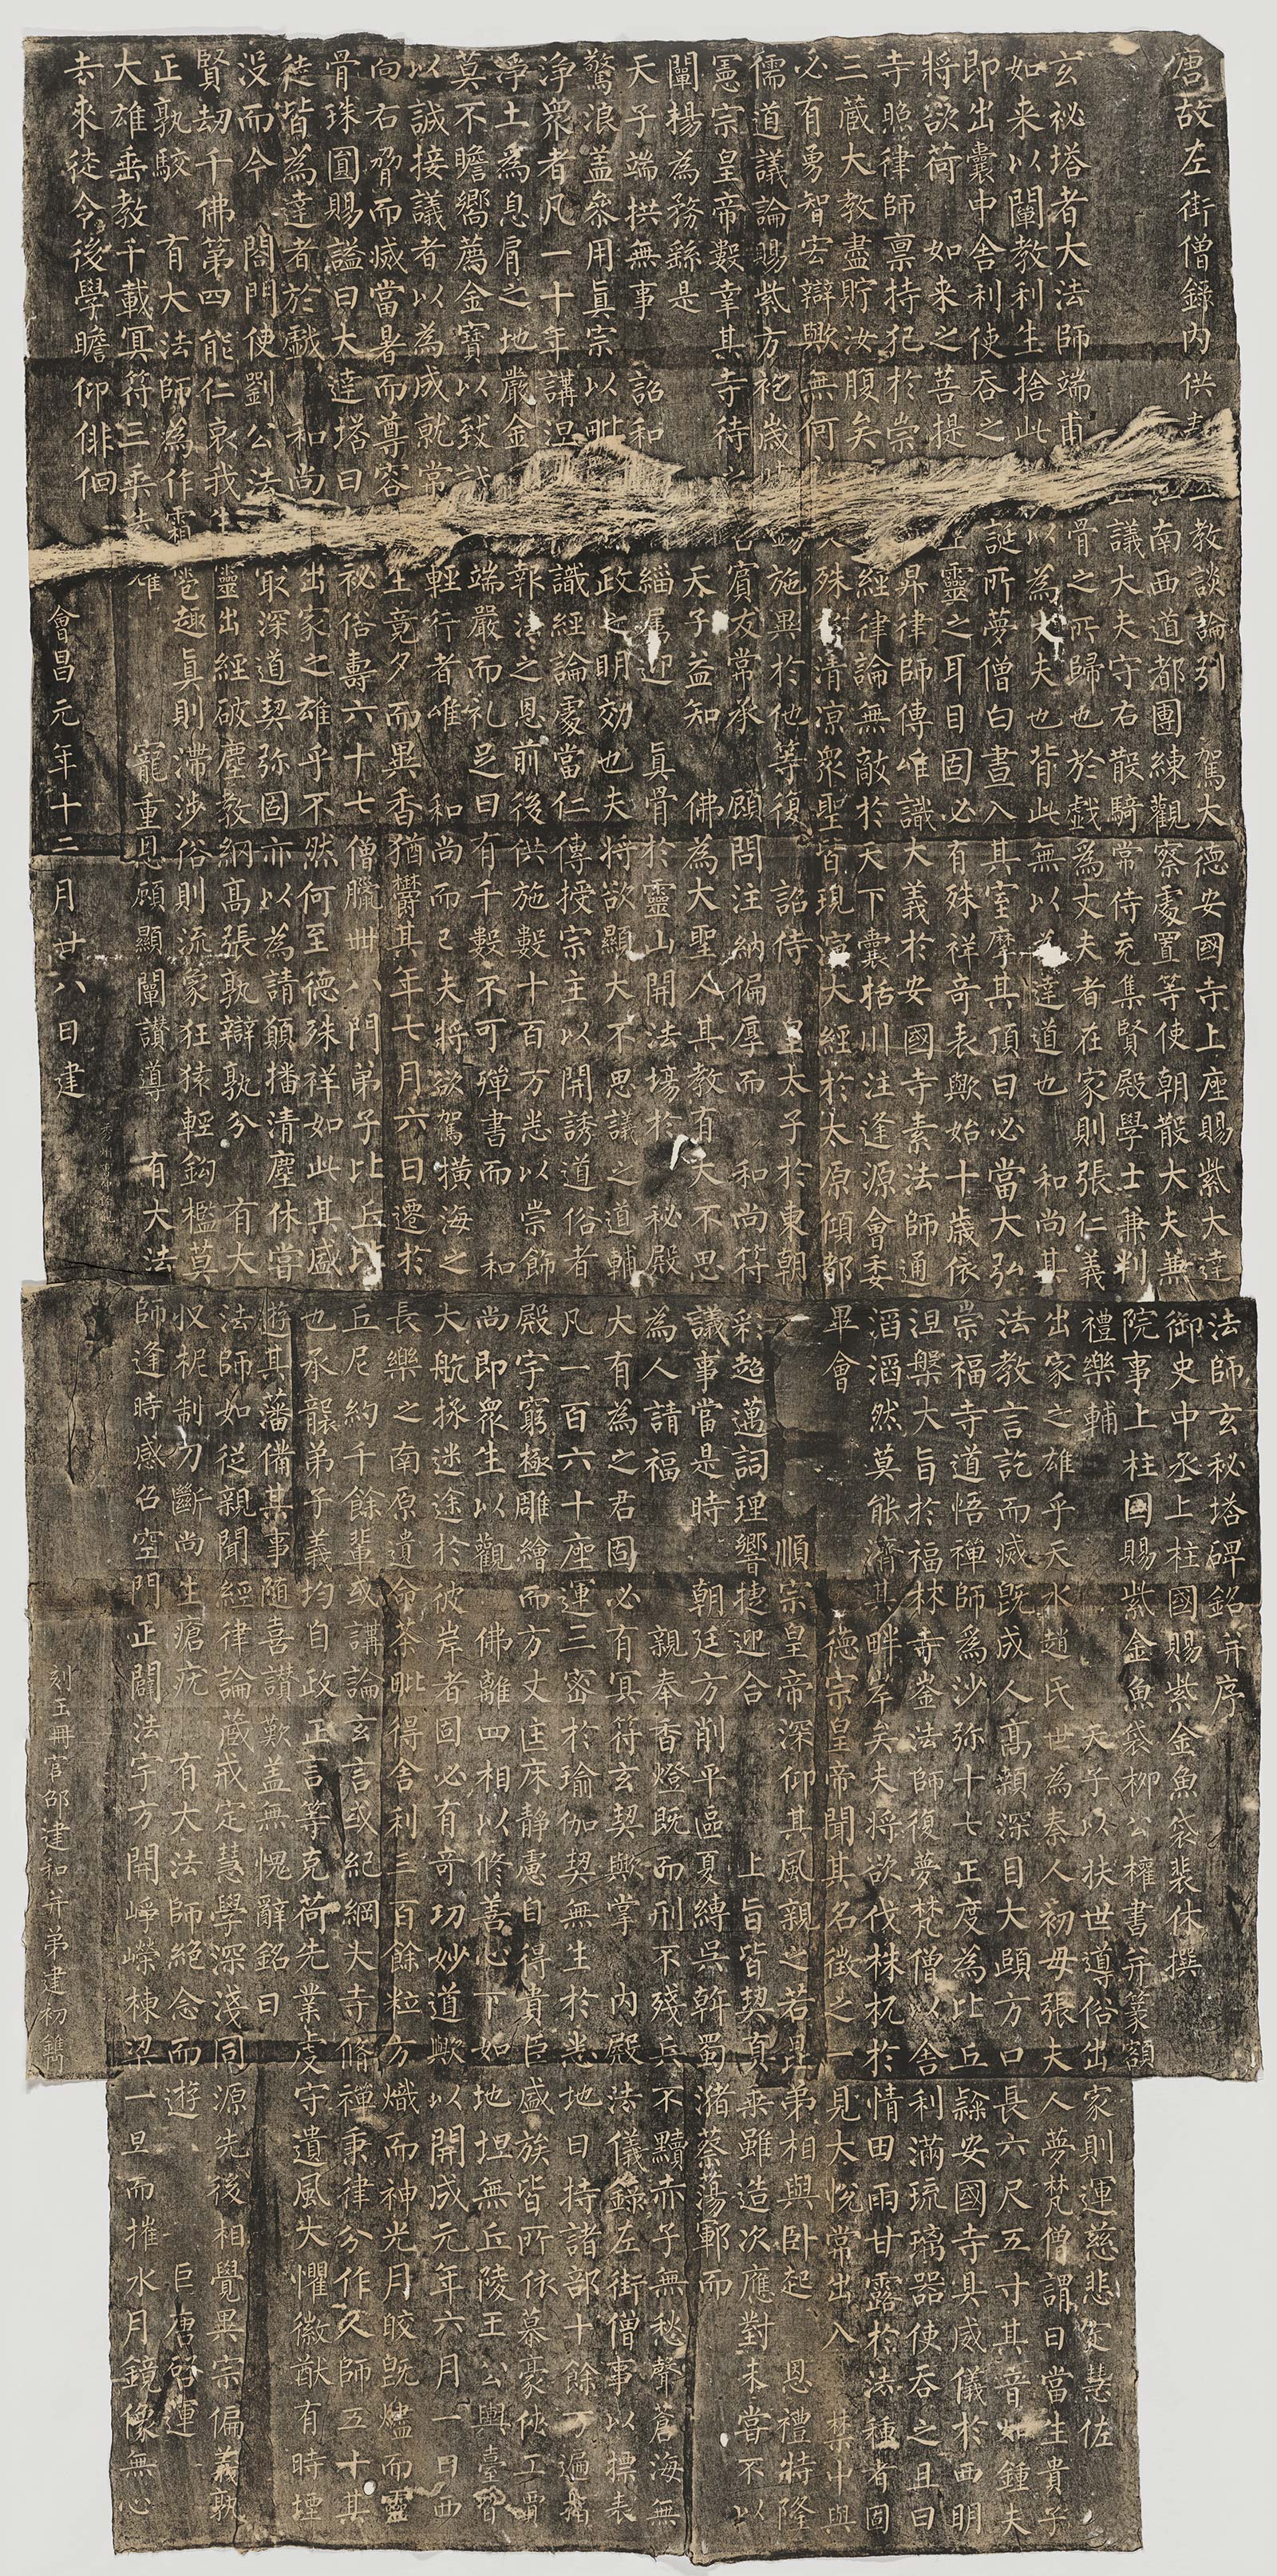 唐故左街僧錄內供教談論引 駕大德安國寺上座賜紫大達法師玄秘塔碑銘并序
南西道都團練觀察處置等使朝散大夫兼御史中丞上柱國賜紫金魚袋裴休撰
議大夫守右散騎常侍充集賢殿學士兼判院事上柱國賜紫金魚袋柳公權書并篆額
玄祕塔者大法師端甫骨之所歸也於戲為丈夫者在家則張仁義禮樂輔 天子以扶世導俗出家則運慈悲定慧佐
如来以闡教利生捨此以為夫也背此無以為達道也 和尚其出家之雄乎天水趙氏世為秦人初母張夫人夢梵僧謂曰當生貴子
即出囊中舍利使吞之誕所夢僧白晝入其室摩其頂曰必當大弘法教言訖而滅既成人高顙深目大頤方口長六尺五寸其音如鍾夫
將欲荷 如来之菩提靈之耳目固必有殊祥奇表歟始十歲依崇福寺道悟禪師為沙弥十七正度為比丘隸安國寺具威儀於西明
寺照律師禀持犯於崇昇律師傳唯識大義於安國寺素法師通涅槃大旨於福林寺崟法師復夢梵僧以舍利滿琉璃器使吞之且曰
三藏大教盡貯汝腹矣經律論無敵於天下囊括川注逢源會委滔滔然莫能濟其畔岸矣夫將欲伐株杌於情田雨甘露於法種者固
必有勇智宏辯歟無何殊清凉眾聖皆現演大經於太原傾都畢會 德宗皇帝聞其名徵之一見大悅常出入禁中與
儒道議論賜紫方袍歲施異於他等復 詔侍 皇太子於東朝 順宗皇帝深仰其風親之若昆弟相與卧起 恩禮特隆
憲宗皇帝數幸其寺待之賓友常承 顧問注納偏厚而 和尚符彩超邁詞理響捷迎合 上旨皆契真乘雖造次應對未嘗不以
闡揚為務繇是 天子益知 佛為大聖人其教有大不思議事當是時 朝廷方削平區夏縛吳斡蜀瀦蔡蕩鄆而
天子端拱無事 詔和緇属迎 真骨於靈山開法場於 秘殿為人請福 親奉香燈既而刑不殘兵不黷赤子無愁聲蒼海無
驚浪盖參用真宗以毗政之明効也夫將欲顯大不思議之道輔大有為之君固必有冥符玄契歟掌 內殿法儀錄左街僧事以摽表
淨眾者凡一十年講涅識經論處當仁傳授宗主以開誘道俗者凡一百六十座運三密於瑜伽契無生於悉地日持諸部十餘万遍指
淨土為息肩之地嚴金報法之恩前後供施數十百万悉以崇飾殿宇窮極雕繪而方丈匡床靜慮自得貴臣盛族皆所依慕豪俠工賈
莫不瞻嚮薦金寶以致端嚴而礼足日有千數不可殫書而 和尚即眾生以觀 佛離四相以修善心下如地坦無丘陵王公輿臺皆
以誠接議者以為成就常輕行者唯 和尚而已夫將欲駕橫海之大航拯迷途於彼岸者固必有奇功妙道歟以開成元年六月一日西
向右脅而滅當暑而尊容生竟夕而異香猶鬱其年七月六日遷於長樂之南原遺命荼毗得舍利三百餘粒方熾而神光月皎既燼而靈
骨珠圓賜謚曰大達塔曰祕俗壽六十七僧臘卌八門弟子比丘比丘尼約千餘輩或講論玄言或紀綱大寺脩禪秉律分作人師五十其
徒皆為達者於戲 和尚出家之雄乎不然何至德殊祥如此其盛也承襲弟子義均自政正言等克荷先業虔守遺風大懼徽猷有時堙
没而今 閤門使劉公法最深道契弥固亦以為請願播清塵休嘗遊其藩備其事隨喜讚歎盖無愧辭銘曰
賢劫千佛第四能仁哀我生靈出經破塵教網高張孰辯孰分 有大法師如從親聞經律論藏戒定慧學深淺同源先後相覺異宗偏義孰
正孰駮 有大法師為作霜雹趣真則滯涉俗則流象狂猿輕鈎檻莫收柅制刀斷尚生瘡疣 有大法師絕念而遊 巨唐啓運
大雄垂教千載冥符三乘 寵重恩顧顯闡讚導 有大法師逢時感召空門正闢法宇方開崢嶸棟梁一旦而摧水月鏡像無心
去來徒令後學瞻仰俳佪
會昌元年十二月廿八日建 刻玉冊官邵建和并弟建初鐫